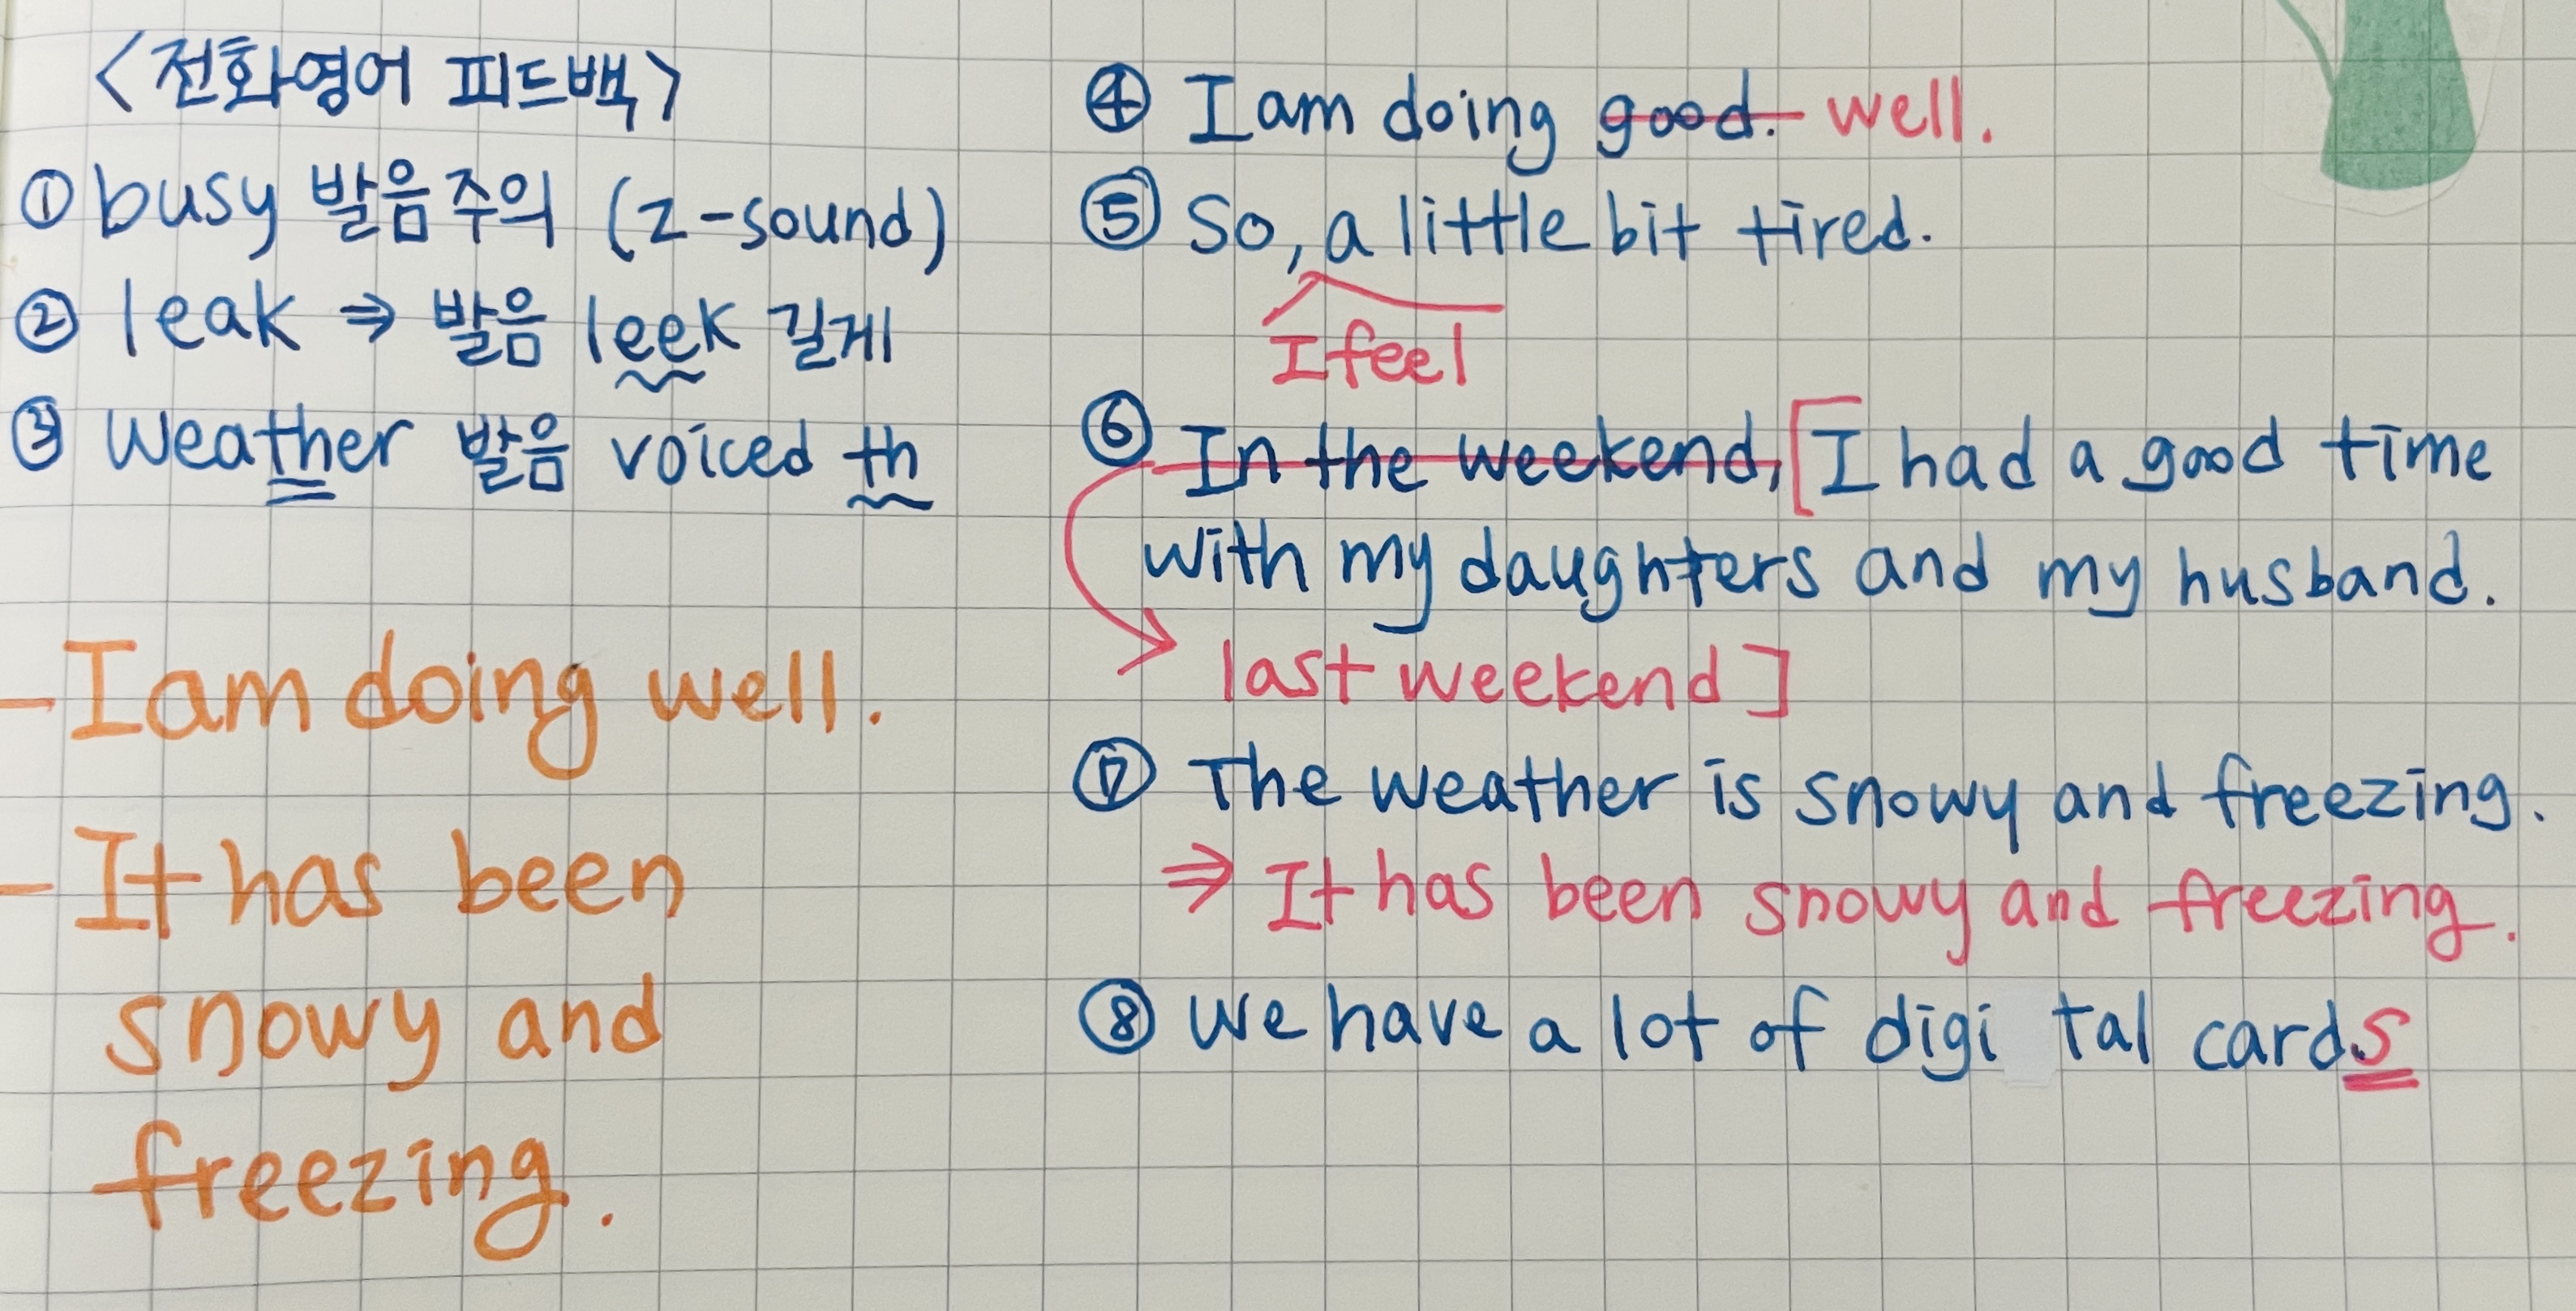 <전화영어 피드백>
① busy 발음주의 (z-sound)
② leak ⇒ 발음 leek 길게
③ weather 발음 voiced th
- I am doing well.
- It has been
snowy and
freezing.
④ I am doing good. well.
⑤ So, a little bit tired.
I feel
⑥ In the weekend, [I had a good time
with my daughters and my husband.
last weekend]
⑦ The weather is snowy and freezing.
⇒ It has been snowy and freezing.
⑧ We have a lot of digi tal cards